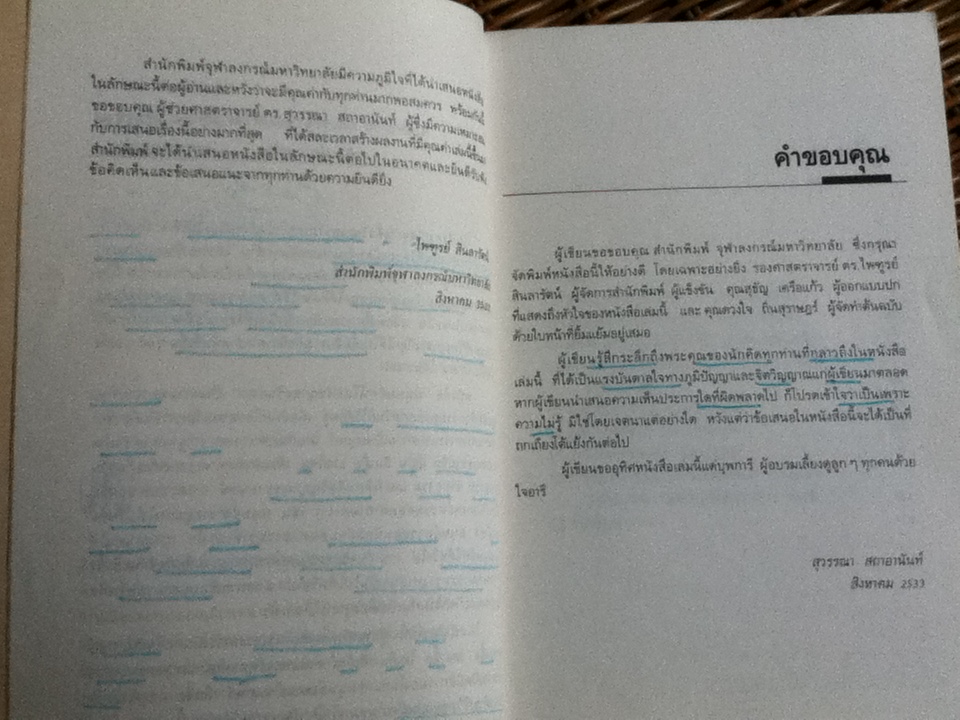 สำนักพิมพ์จุฬาลงกรณ์มหาวิทยาลัยมีความภูมิใจที่ได้นำเสนอหนังสือ
ในลักษณะนี้ต่อผู้อ่านและหวังว่าจะมีคุณค่ากับทุกท่านมากพอสมควร พร้อมกันนี้
ขอขอบคุณ ผู้ช่วยศาสตราจารย์ ดร.สุวรรณา สถาอานันท์ ผู้ซึ่งมีความเหมาะสม
กับการเสนอเรื่องนี้อย่างมากที่สุด ที่ได้สละเวลาสร้างผลงานที่มีคุณค่าเล่มนี้ขึ้นมา
สำนักพิมพ์ จะได้นำเสนอหนังสือในลักษณะนี้ต่อไปในอนาคตและยินดีรับฟัง
ข้อคิดเห็นและข้อเสนอแนะจากทุกท่านด้วยความยินดียิ่ง
ไพฑูรย์ สินลารัตน์
สำนักพิมพ์จุฬาลงกรณ์มหาวิทยาลัย
สิงหาคม 2533
คำขอบคุณ
ผู้เขียนขอขอบคุณ สำนักพิมพ์ จุฬาลงกรณ์มหาวิทยาลัย ซึ่งกรุณา
จัดพิมพ์หนังสือนี้ให้อย่างดี โดยเฉพาะอย่างยิ่ง รองศาสตราจารย์ ดร.ไพฑูรย์
สินลารัตน์ ผู้จัดการสำนักพิมพ์ ผู้แข็งขัน คุณสุชัญ เครือแก้ว ผู้ออกแบบปก
ที่แสดงถึงหัวใจของหนังสือเล่มนี้ และ คุณดวงใจ ถิ่นสุราษฎร์ ผู้จัดทำต้นฉบับ
ด้วยใบหน้าที่ยิ้มแย้มอยู่เสมอ
ผู้เขียนรู้สึกระลึกถึงพระคุณของนักคิดทุกท่านที่กล่าวถึงในหนังสือ
เล่มนี้ ที่ได้เป็นแรงบันดาลใจทางภูมิปัญญาและจิตวิญญาณแก่ผู้เขียนมาตลอด
หากผู้เขียนนำเสนอความเห็นประการใดที่ผิดพลาดไป ก็โปรดเข้าใจว่าเป็นเพราะ
ความไม่รู้ มิใช่โดยเจตนาแต่อย่างใด หวังแต่ว่าข้อเสนอในหนังสือนี้จะได้เป็นที่
ถกเถียงโต้แย้งกันต่อไป
ผู้เขียนขออุทิศหนังสือเล่มนี้แด่บุพการี ผู้อบรมเลี้ยงดูลูก ๆ ทุกคนด้วย
ใจอารี
สุวรรณา สถาอานันท์
สิงหาคม 2533